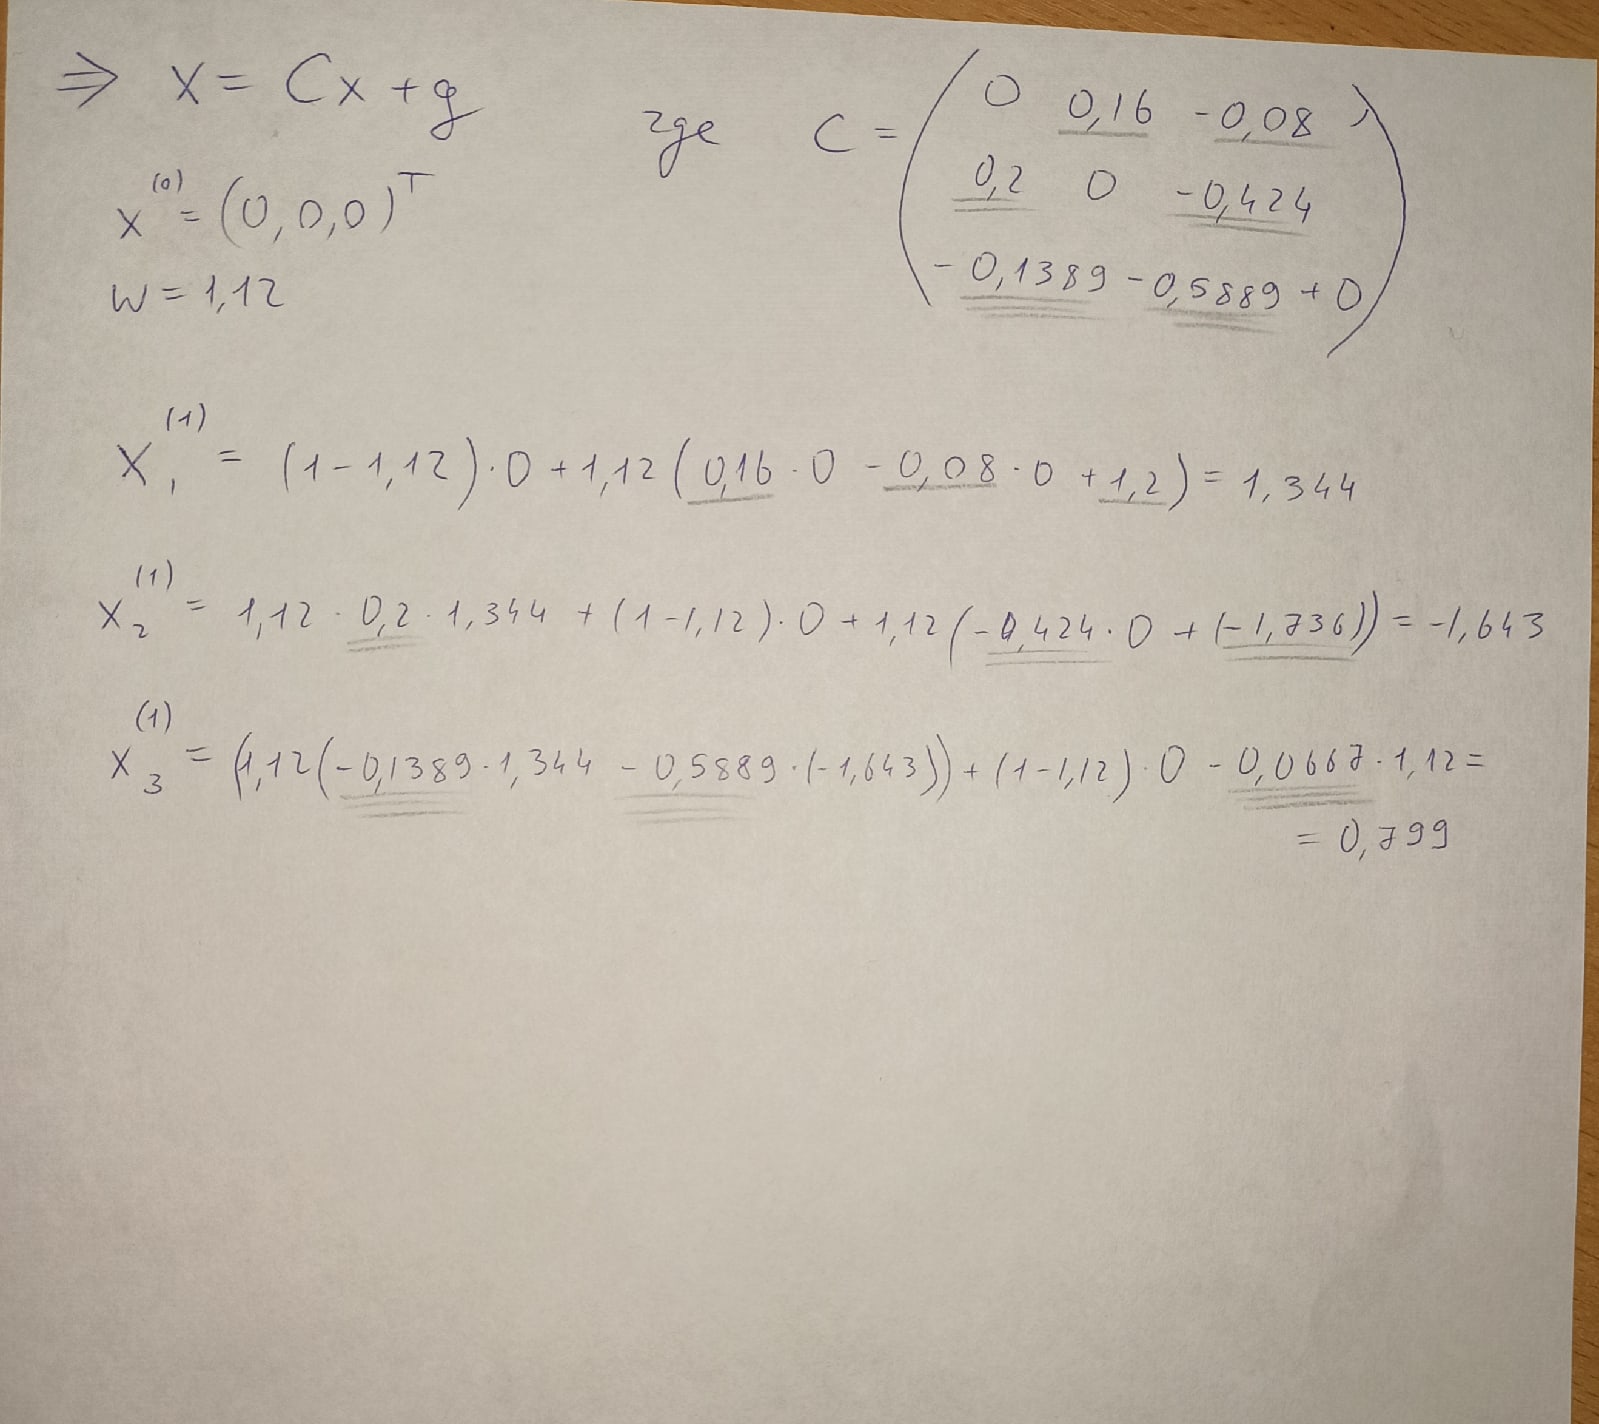 ⇒ x = Cx + g где C = ( 0 0,16 -0,08 )
0,2 0 -0,424
-0,1389 -0,5889 +0
x^(0) = (0,0,0)^T
w = 1,12
x₁^(1) = (1-1,12)·0 + 1,12(0,16·0 - 0,08·0 + 1,2) = 1,344
x₂^(1) = 1,12·0,2·1,344 + (1-1,12)·0 + 1,12(-0,424·0 + (-1,736)) = -1,643
x₃^(1) = (1,12(-0,1389·1,344 - 0,5889·(-1,643)) + (1-1,12)·0 - 0,0667·1,12 =
= 0,799